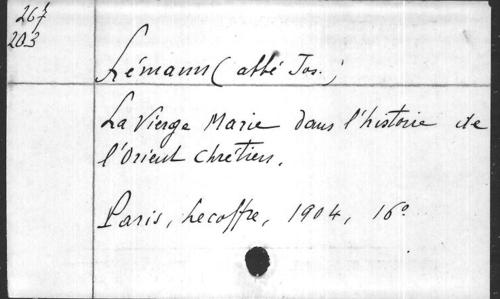 267
203
Lémann (abbé Jos.)
La Vierge Marie dans l'histoire de
l'Orient Chrétien.
Paris, Lecoffre, 1904, 16°